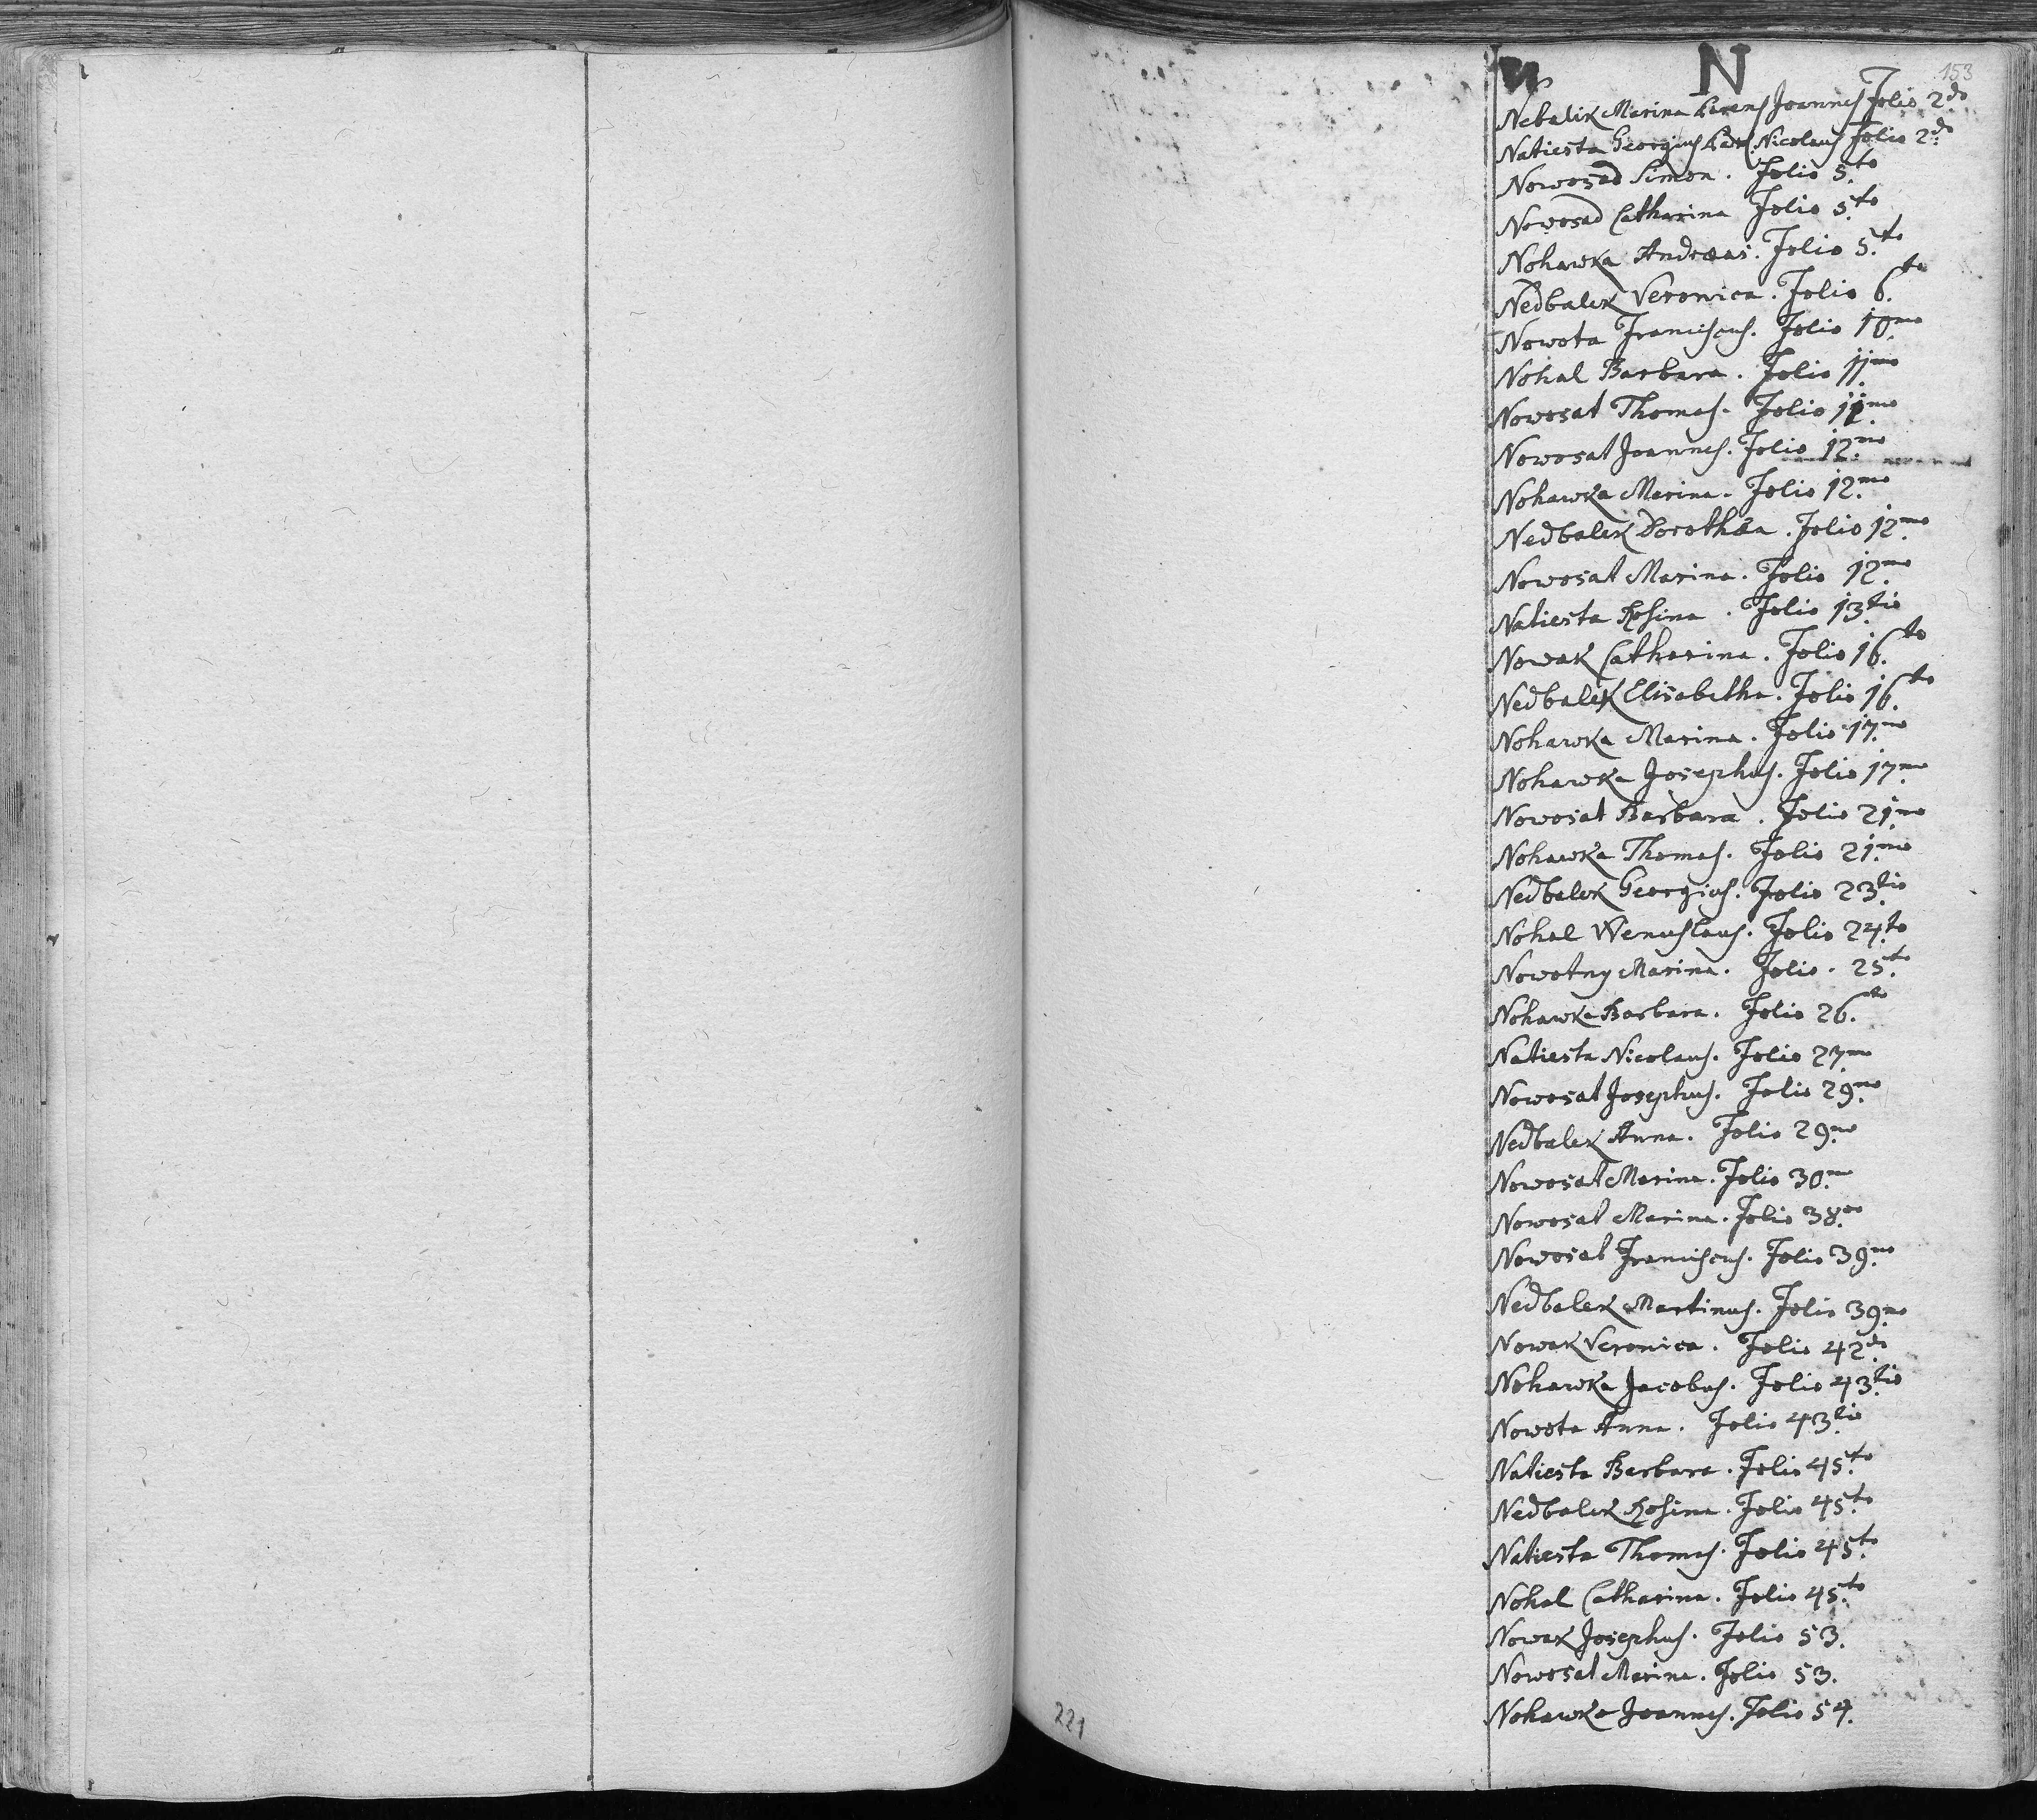 N
153
Nebalik Marina Parens Joannes Folio 2do
Natiesta Georgius Nicolaus Folio 2do
Nowosad Simon. Folio 5.to
Nowosad Catharina Folio 5.to
Nohawka Andreas. Folio 5.to
Nedbalek Veronica. Folio 6.to
Nowota Franciscus. Folio 10.mo
Nohal Barbara. Folio 11.mo
Nowosat Thomas. Folio 11.mo
Nowosat Joannes. Folio 12.mo
Nohawka Marina. Folio 12.mo
Nedbalek Dorothæa. Folio 12.mo
Nowosat Marina. Folio 12.mo
Natiesta Rosina. Folio 13.tio
Nowak Catharina. Folio 16.to
Nedbalek Elisabetha. Folio 16.to
Nohawka Marina. Folio 17.mo
Nohawka Josephus. Folio 17.mo
Nowosat Barbara. Folio 21.mo
Nohawka Thomas. Folio 21.mo
Nedbalek Georgius. Folio 23.tio
Nohal Wenceslaus. Folio 24.to
Nowotny Marina. Folio. 25.to
Nohawka Barbara. Folio 26.to
Natiesta Nicolaus. Folio 27.mo
Nowosat Josephus. Folio 29.no
Nedbalek Anna. Folio 29.no
Nowosat Marina. Folio 30.mo
Nowosat Marina. Folio 38.vo
Nowosat Franciscus. Folio 39.no
Nedbalek Martinus. Folio 39.no
Nowak Veronica. Folio 42.do
Nohawka Jacobus. Folio 43.tio
Nowota Anna. Folio 43.tio
Natiesta Barbara. Folio 45.to
Nedbalek Rosina. Folio 45.to
Natiesta Thomas. Folio 45.to
Nohal Catharina. Folio 45.to
Nowak Josephus. Folio 53.
Nowosat Marina. Folio 53.
Nohawka Joannes. Folio 54.
221